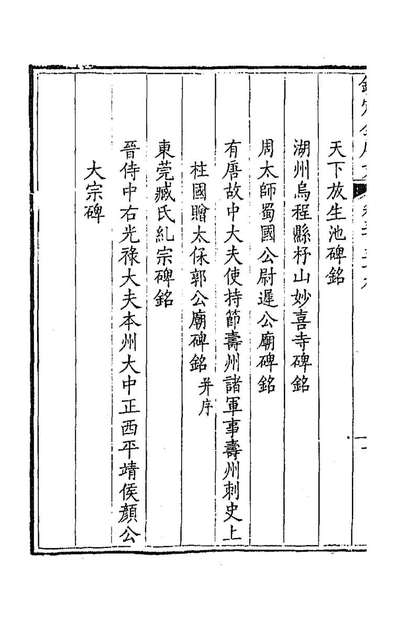 天下放生池碑銘
湖州烏程縣杼山妙喜寺碑銘
周太師蜀國公尉遲公廟碑銘
有唐故中大夫使持節壽州諸軍事壽州刺史上
柱國贈太保郭公廟碑銘 并序
東莞臧氏糺宗碑銘
晉侍中右光祿大夫本州大中正西平靖侯顏公
大宗碑